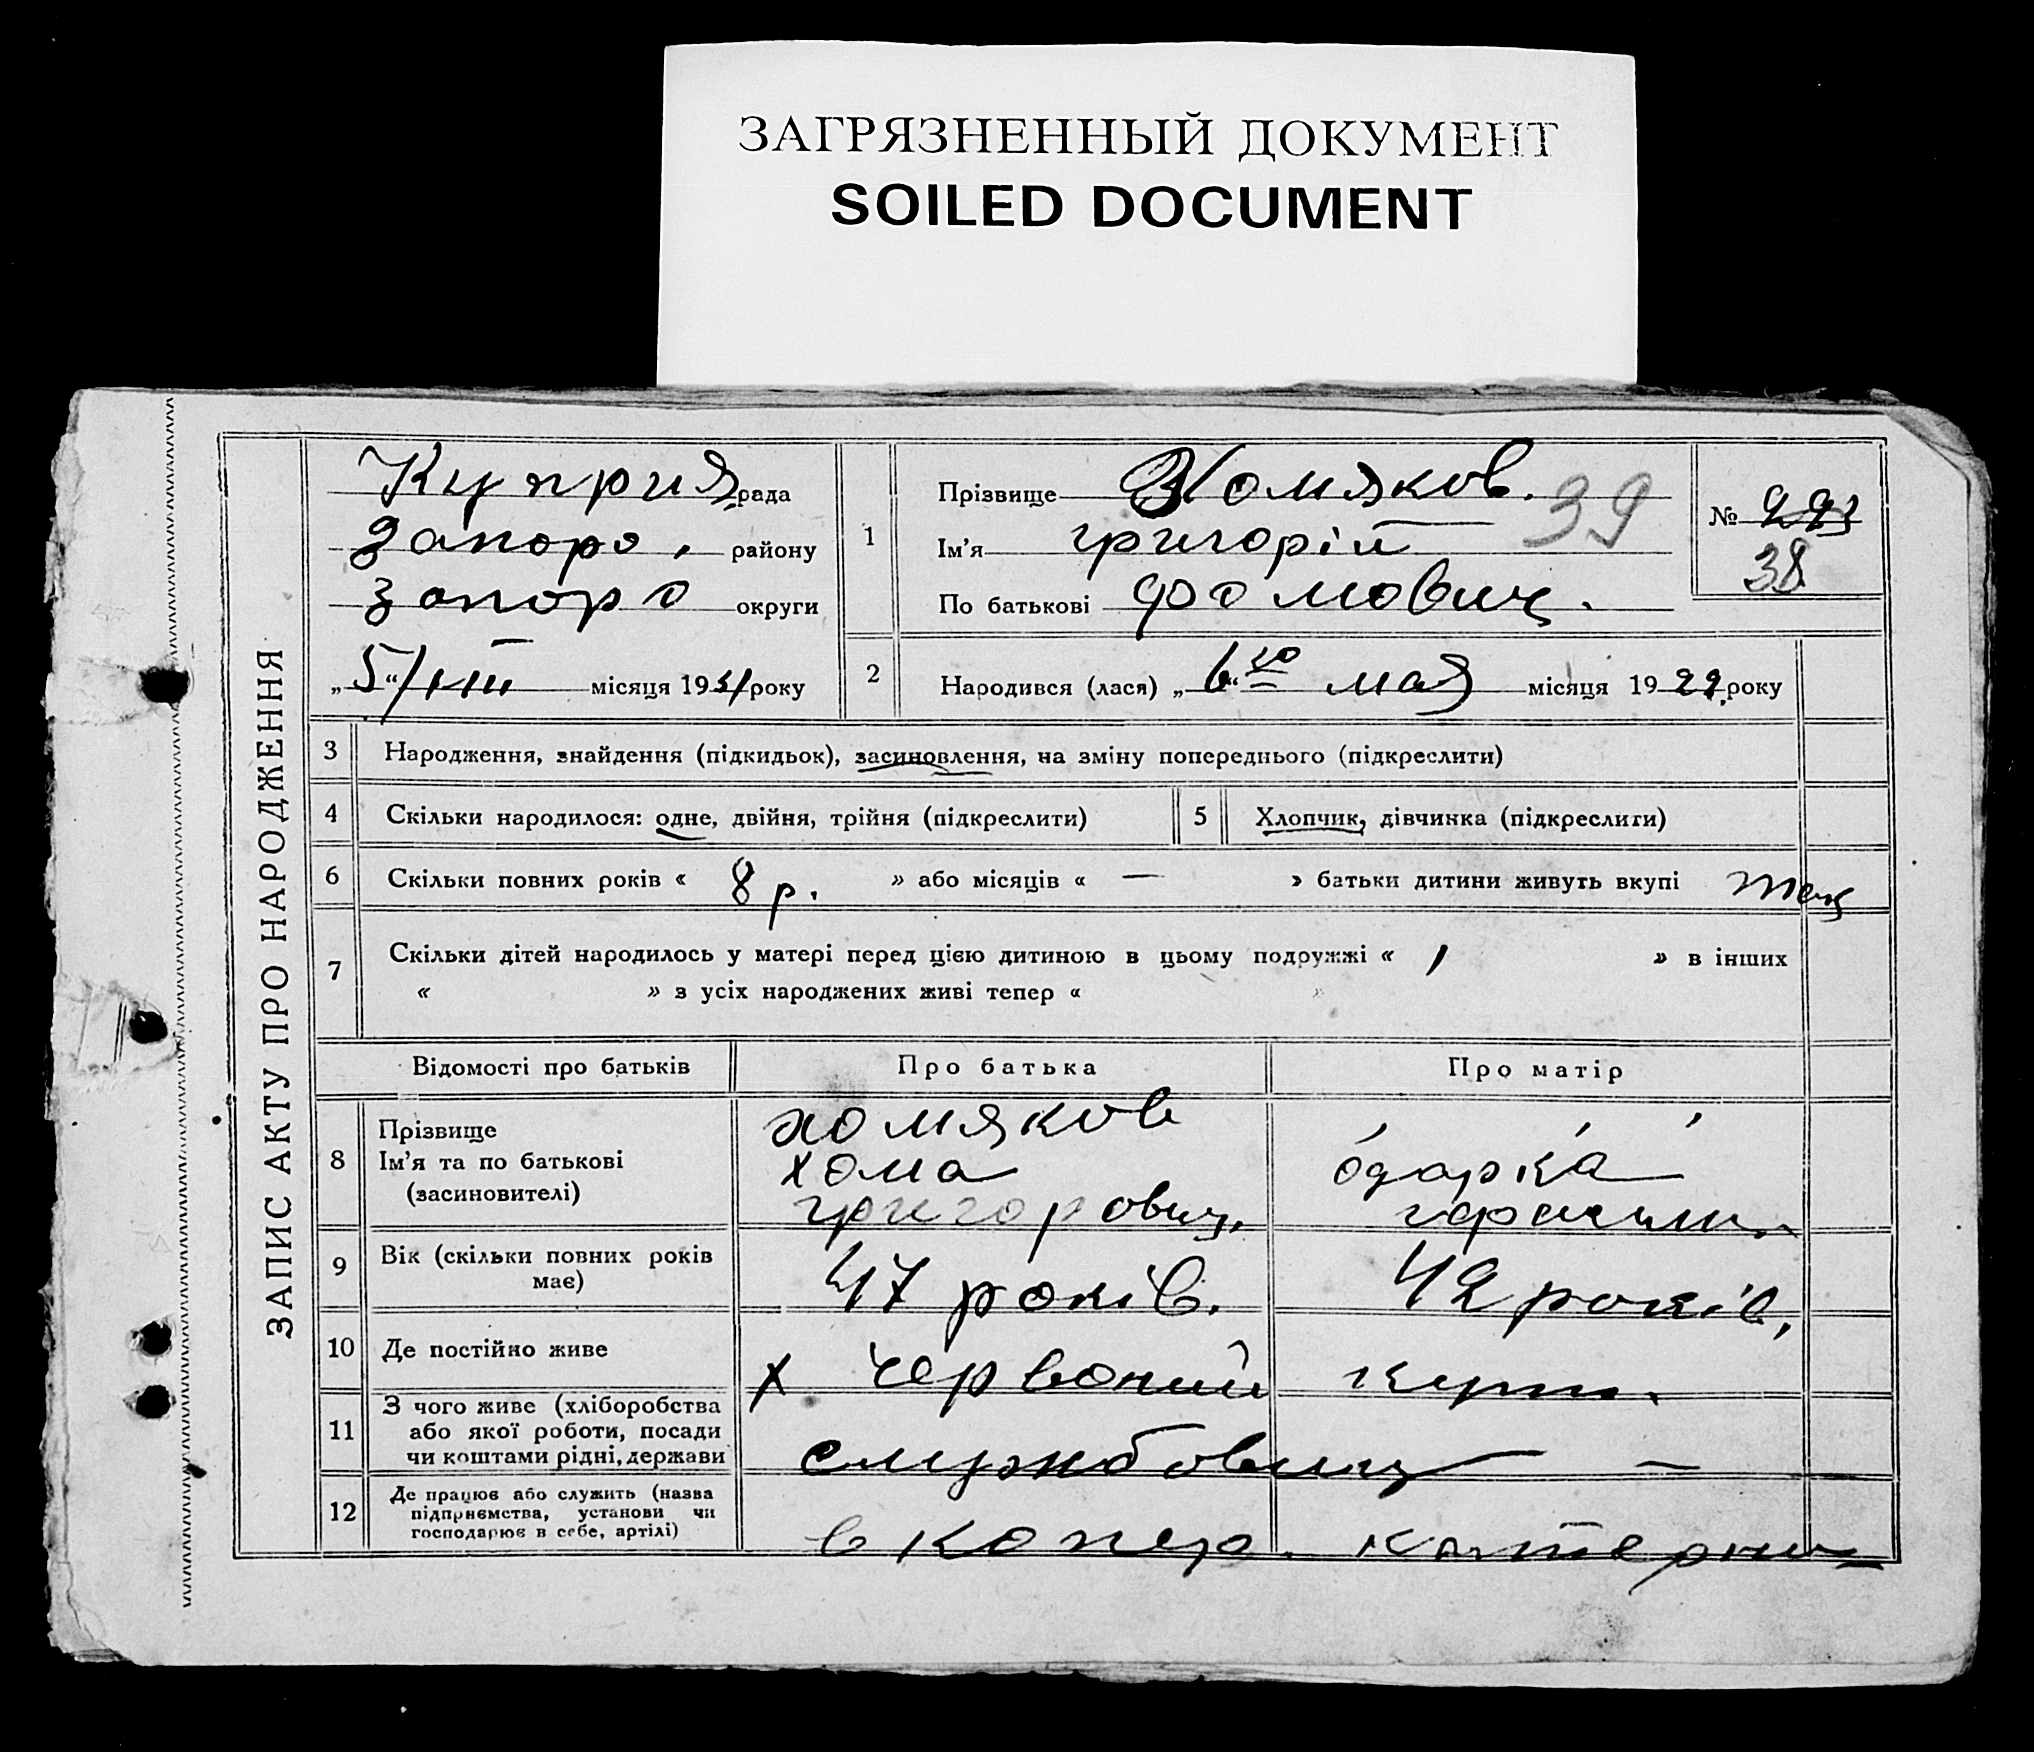 ЗАГРЯЗНЕННЫЙ ДОКУМЕНТ
SOILED DOCUMENT
ЗАПИС АКТУ ПРО НАРОДЖЕННЯ
Куприя рада
Запоро. району
Запоро округи
„5“/VIII місяця 1931 року
1
Прізвище Хомяков. 39
Ім’я григорій
По батькові фомович.
№
38
2
Народився (лася) „6“го мая місяця 19 року
3 Народження, знайдення (підкидьок), засиновлення, на зміну попереднього (підкреслити)
4 Скільки народилося: одне, двійня, трійня (підкреслити)
5 Хлопчик, дівчинка (підкреслити)
6 Скільки повних років « 8 р. » або місяців « — » батьки дитини живуть вкупі
7 Скільки дітей народилось у матері перед цією дитиною в цьому подружжі « 1 » в інших
« » з усіх народжених живі тепер « »
Відомості про батьків Про батька Про матір
8 Прізвище
Ім’я та по батькові
(засиновителі)
хомяков
хома
григорович.
одарка
9 Вік (скільки повних років
має)
47 років.
42 років,
10 Де постійно живе
х червоний
11 З чого живе (хліборобства
або якої роботи, посади
чи коштами рідні, держави
службовиц —
12 Де працює або служить (назва
підприємства, установи чи
господарює в себе, артілі)
в копер.